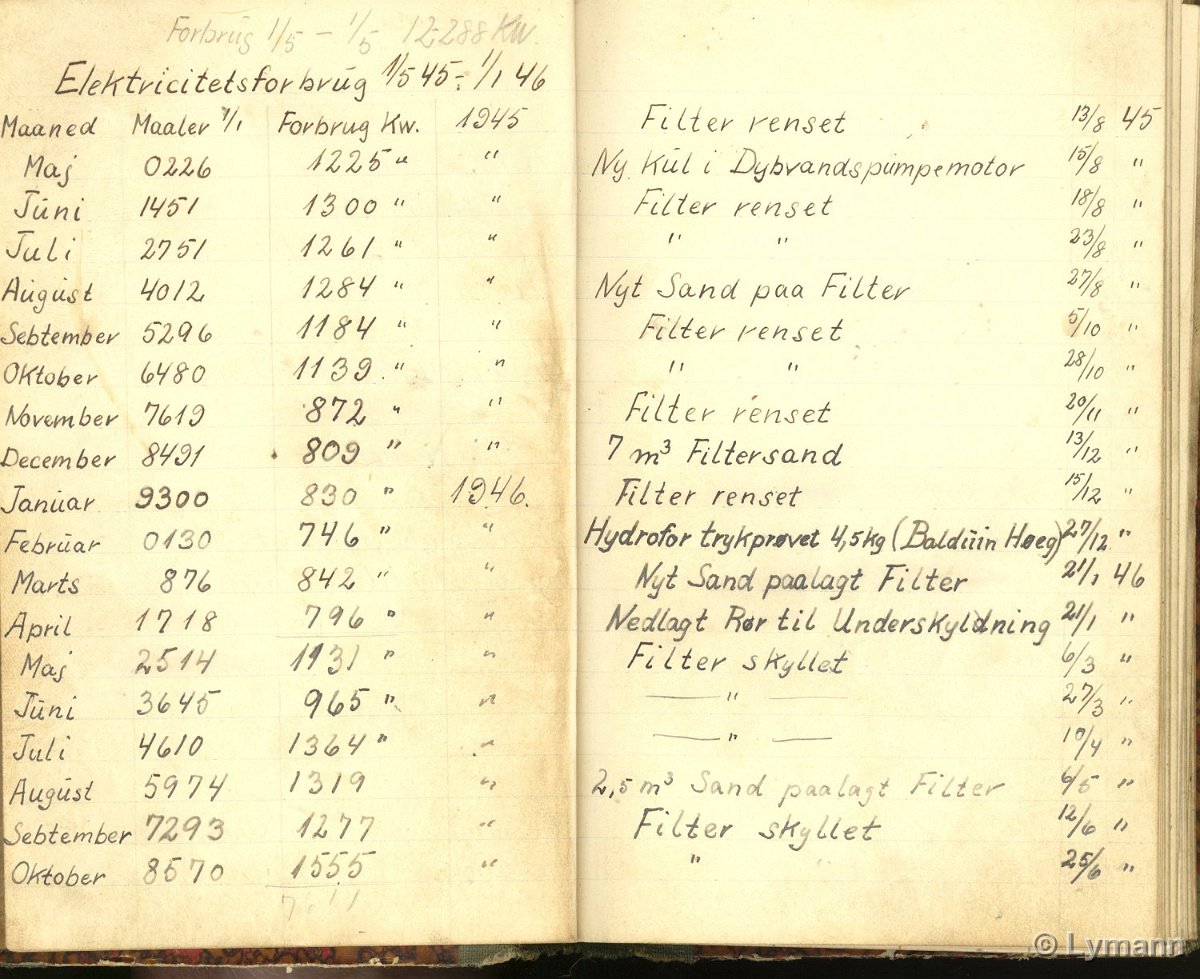 Forbrug 1/5 - 1/5 12288 Kw.
Elektricitetsforbrug 1/5 45 ÷ 1/1 46
Maaned Maaler 1/1 Forbrug Kw. 1945
Maj 0226 1225 " "
Juni 1451 1300 " "
Juli 2751 1261 " "
August 4012 1284 " "
Sebtember 5296 1184 " "
Oktober 6480 1139 " "
November 7619 872 " "
December 8491 809 " "
Januar 9300 830 " 1946.
Februar 0130 746 " "
Marts 876 842 " "
April 1718 796 " "
Maj 2514 1131 " "
Juni 3645 965 " "
Juli 4610 1364 " "
August 5974 1319 "
Sebtember 7293 1277 "
Oktober 8570 1555 "
Filter renset 13/8 45
Ny Kul i Dybvandspumpemotor 15/8 "
Filter renset 18/8 "
" " 23/8 "
Nyt Sand paa Filter 27/8 "
Filter renset 5/10 "
" " 28/10 "
Filter renset 20/11 "
7 m³ Filtersand 13/12 "
Filter renset 15/12 "
Hydrofor trykprøvet 4,5 kg (Balduin Høeg) 27/12 "
Nyt Sand paalagt Filter 21/1 46
Nedlagt Rør til Underskyldning 21/1 "
Filter skyllet 6/3 "
— " — 27/3 "
— " — 10/4 "
2,5 m³ Sand paalagt Filter 6/5 "
Filter skyllet 12/6 "
" 25/6 "
© Lymann